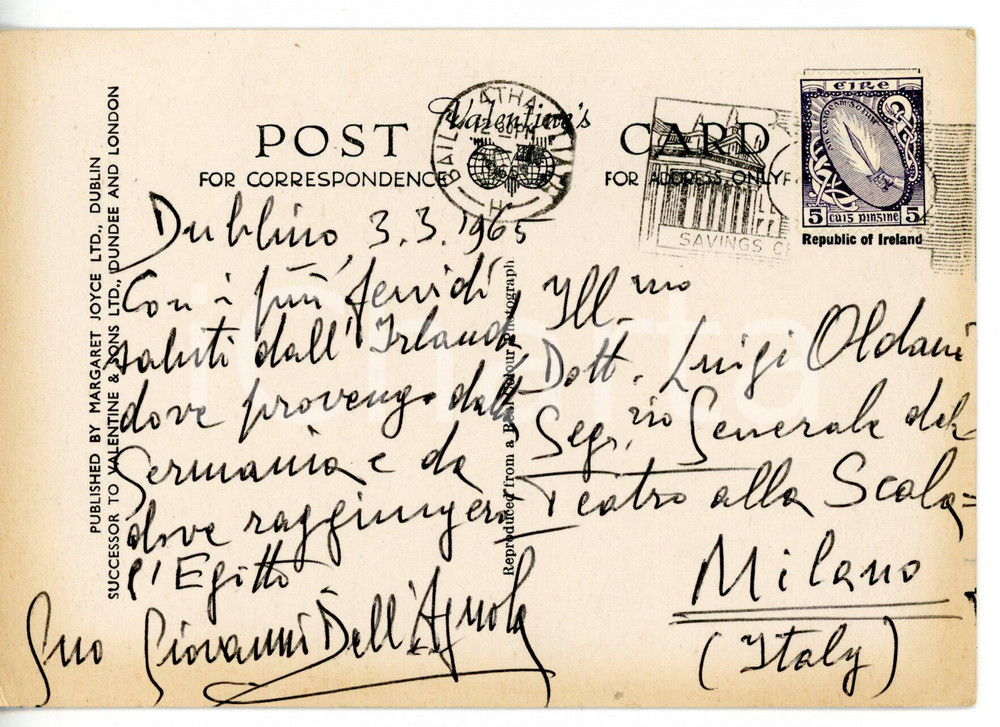 POST CARD
Valentine's
FOR CORRESPONDENCE
FOR ADDRESS ONLY
BAILE ATHA CLIATH
1965
SAVINGS
EIRE
5 CUIS PINGINE 5
Republic of Ireland
PUBLISHED BY MARGARET JOYCE LTD., DUBLIN
SUCCESSOR TO VALENTINE & SONS LTD., DUNDEE AND LONDON
Dublino, 3.3.1965
Con i più fervidi
saluti dall'Irlanda
dove provengo dalla
Germania e da
dove raggiungerò
l'Egitto
Suo Giovanni Dell'Agnola
Reproduced from a Real Colour Photograph
Ill.mo
Dott. Luigi Oldani
Segr.rio Generale del
Teatro alla Scala=
Milano
(Italy)